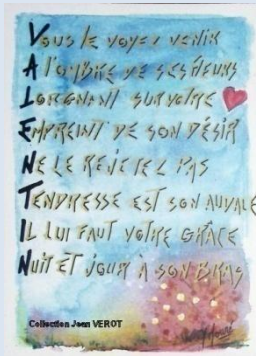 VOUS LE VOYEZ VENIR
A L'OMBRE DE SES FLEURS
LORGNANT SUR VOTRE
EMPREINT DE SON DÉSIR
NE LE REJETEZ PAS
TENDRESSE EST SON AUVALE
IL LUI FAUT VOTRE GRÂCE
NUIT ET JOUR À SON BRAS
Collection Jean VEROT